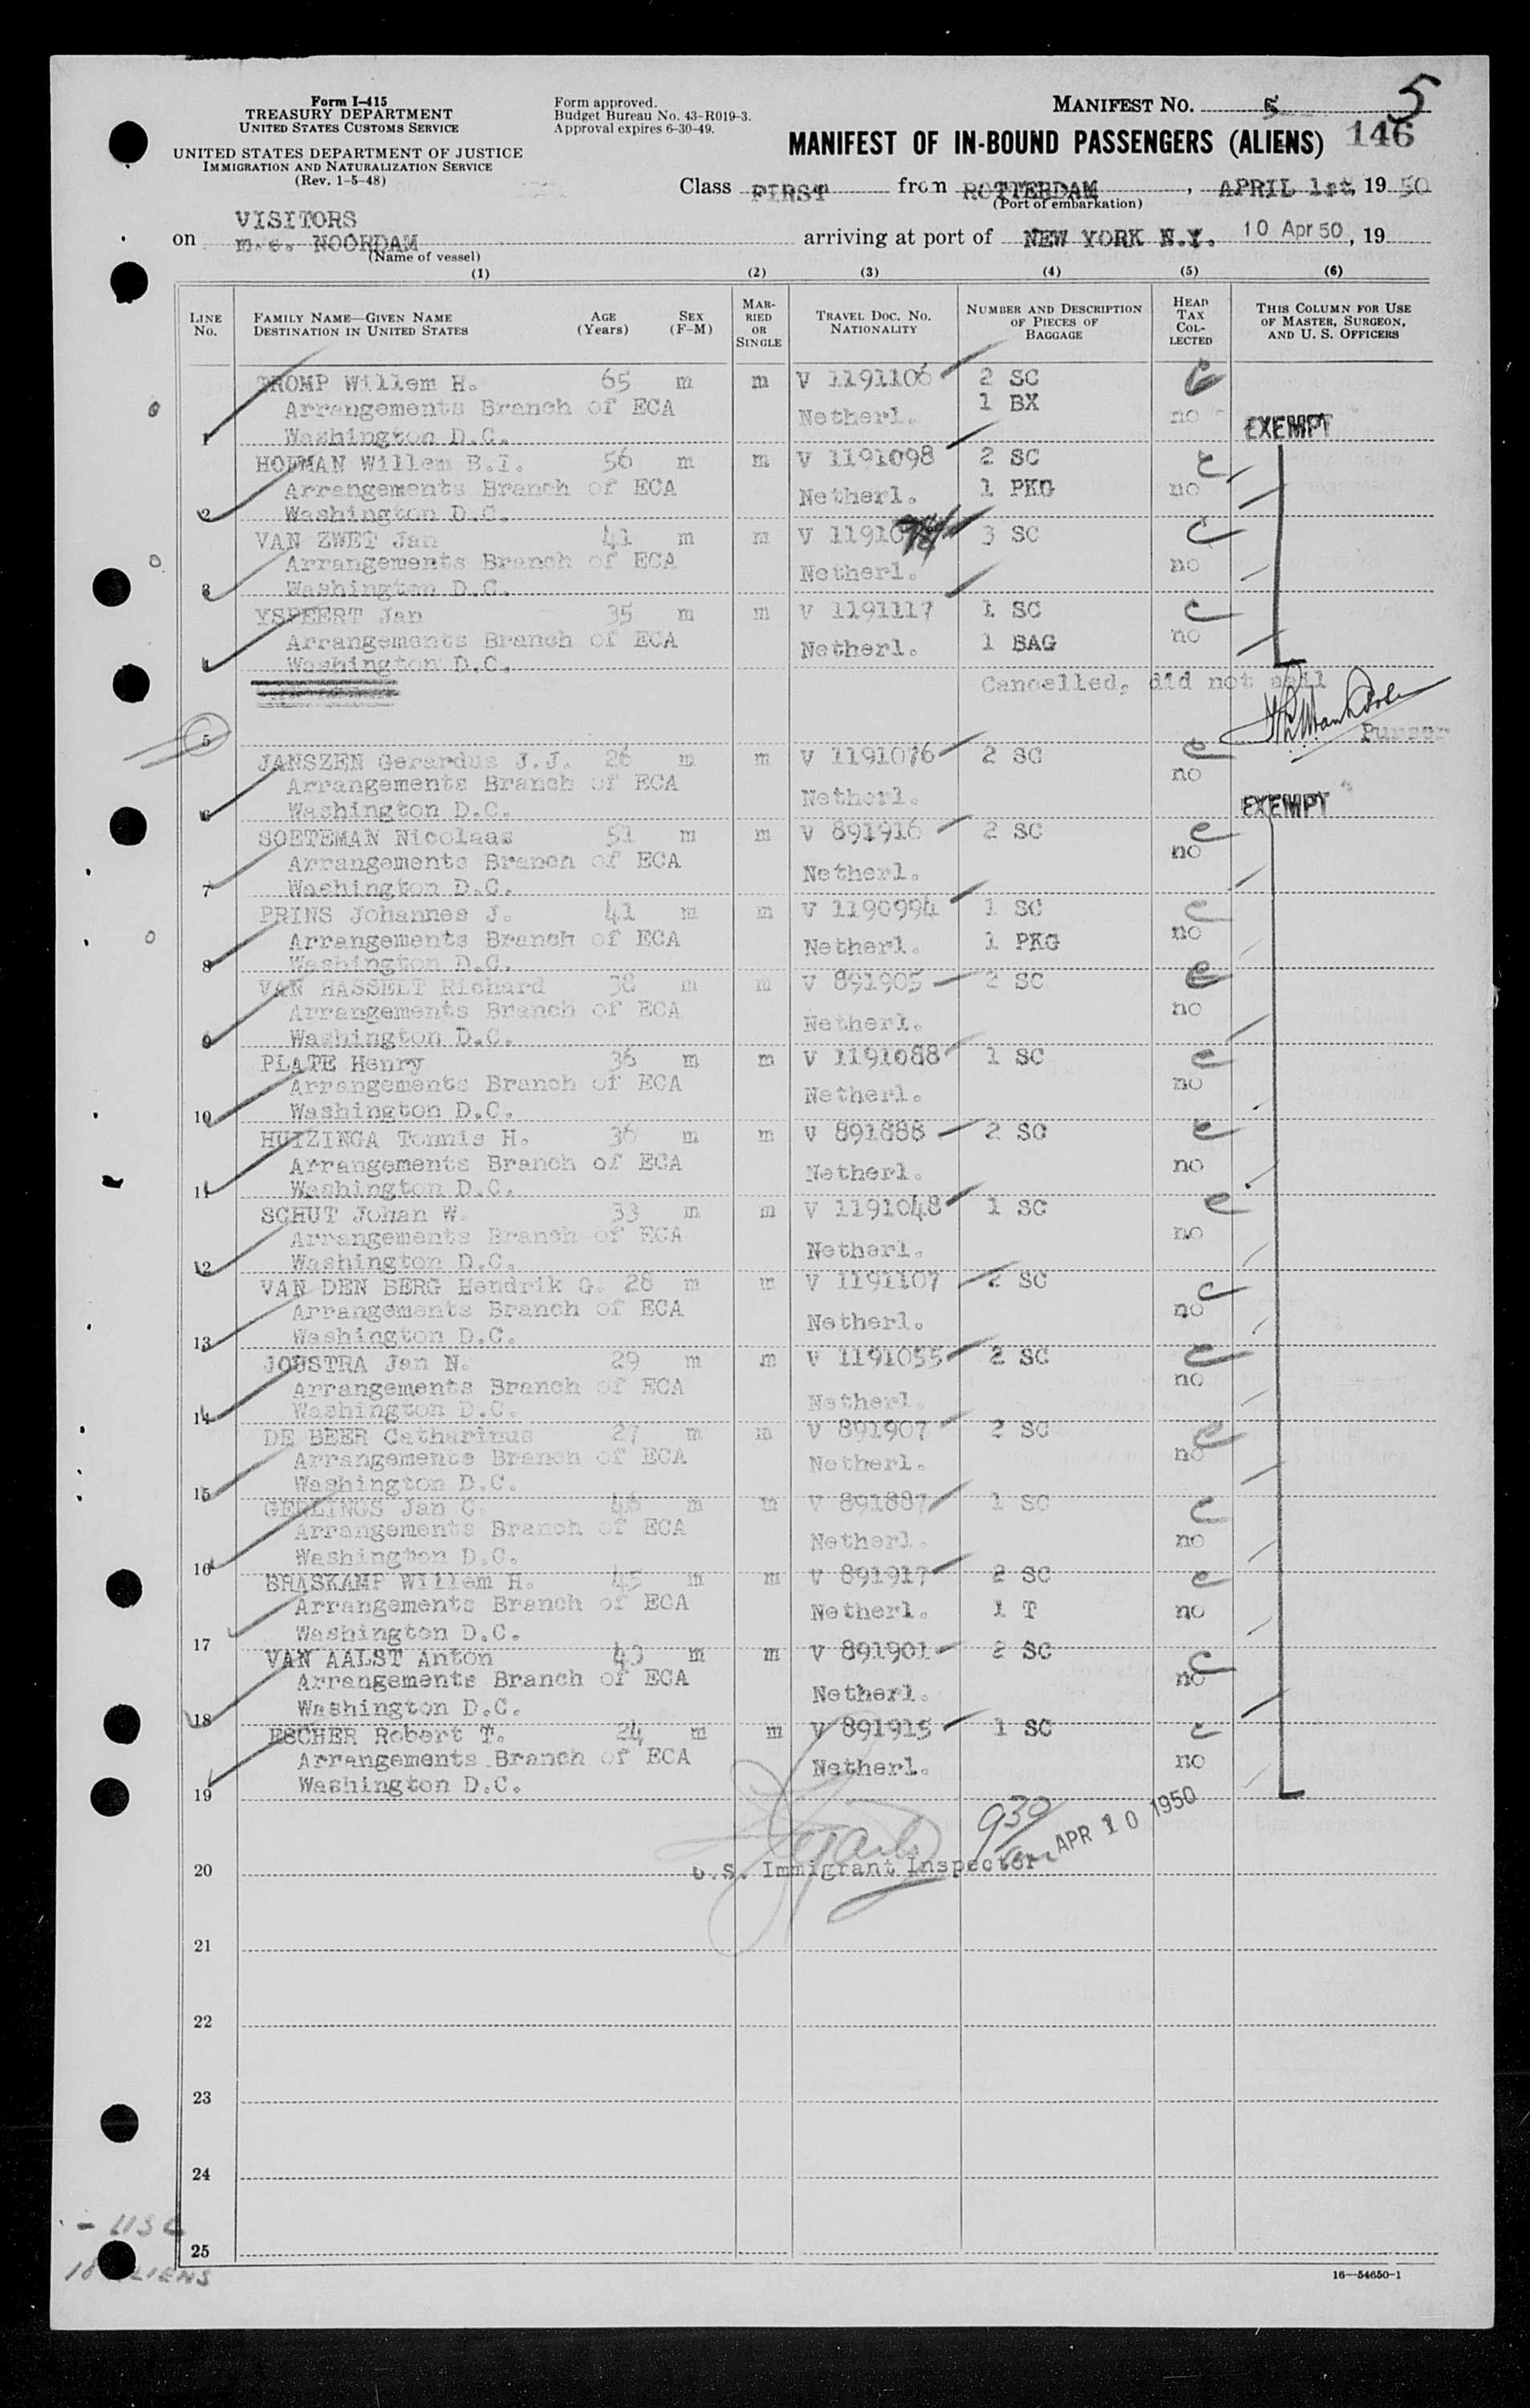 Form I-415
TREASURY DEPARTMENT
UNITED STATES CUSTOMS SERVICE
UNITED STATES DEPARTMENT OF JUSTICE
IMMIGRATION AND NATURALIZATION SERVICE
(Rev. 1-5-48)
Form approved.
Budget Bureau No. 43-R019-3.
Approval expires 6-30-49.
MANIFEST NO. 5 5
MANIFEST OF IN-BOUND PASSENGERS (ALIENS) 146
Class FIRST from ROTTERDAM, APRIL 1st, 19 50
(Port of embarkation)
VISITORS
on m.s. NOORDAM arriving at port of NEW YORK N.Y. 10 Apr 50, 19
(Name of vessel)
(1) (2) (3) (4) (5) (6)
LINE No. FAMILY NAME—GIVEN NAME DESTINATION IN UNITED STATES AGE (Years) SEX (F-M) MARRIED OR SINGLE TRAVEL DOC. NO. NATIONALITY NUMBER AND DESCRIPTION OF PIECES OF BAGGAGE HEAD TAX COLLECTED THIS COLUMN FOR USE OF MASTER, SURGEON, AND U. S. OFFICERS
TROMP Willem H. 65 m m V 1191106 2 SC
Arrangements Branch of ECA Netherl. 1 BX no EXEMPT
1 Washington D.C.
HOFMAN Willem B.I. 56 m m V 1191098 2 SC
Arrangements Branch of ECA Netherl. 1 PKG no
2 Washington D.C.
VAN ZWET Jan 41 m m V 3 SC
Arrangements Branch of ECA Netherl. no
3 Washington D.C.
YSPEERT Jan 35 m m V 1191117 1 SC
Arrangements Branch of ECA Netherl. 1 BAG no
4 Washington D.C.
Cancelled, did not sail
5 Purser
JANSZEN Gerardus J.J. 26 m m V 1191076 2 SC
Arrangements Branch of ECA Netherl. no
6 Washington D.C. EXEMPT
SOETEMAN Nicolaas 51 m m V 891916 2 SC
Arrangements Branch of ECA Netherl. no
7 Washington D.C.
PRINS Johannes J. 41 m m V 1190994 1 SC
Arrangements Branch of ECA Netherl. 1 PKG no
8 Washington D.C.
VAN HASSELT Richard 38 m m V 891905 2 SC
Arrangements Branch of ECA Netherl. no
9 Washington D.C.
PLATE Henry 36 m m V 1191088 1 SC
Arrangements Branch of ECA Netherl. no
10 Washington D.C.
HUIZINGA Tonnis H. 36 m m V 891888 2 SC
Arrangements Branch of ECA Netherl. no
11 Washington D.C.
SCHUT Johan W. 33 m m V 1191048 1 SC
Arrangements Branch of ECA Netherl. no
12 Washington D.C.
VAN DEN BERG Hendrik G. 28 m m V 1191107 2 SC
Arrangements Branch of ECA Netherl. no
13 Washington D.C.
JOUSTRA Jan N. 29 m m V 1191055 2 SC
Arrangements Branch of ECA Netherl. no
14 Washington D.C.
DE BEER Catharinus 27 m m V 891907 2 SC
Arrangements Branch of ECA Netherl. no
15 Washington D.C.
GERLINGS Jan C. 46 m m V 891887 1 SC
Arrangements Branch of ECA Netherl. no
16 Washington D.C.
BRASKAMP Willem H. 45 m m V 891917 2 SC
Arrangements Branch of ECA Netherl. 1 T no
17 Washington D.C.
VAN AALST Anton 43 m m V 891901 2 SC
Arrangements Branch of ECA Netherl. no
18 Washington D.C.
ESCHER Robert T. 24 m m V 891915 1 SC
Arrangements Branch of ECA Netherl. no
19 Washington D.C.
930 APR 10 1950
20 U.S. Immigrant Inspector
21
22
23
24
25
18 ALIENS
16—54650-1